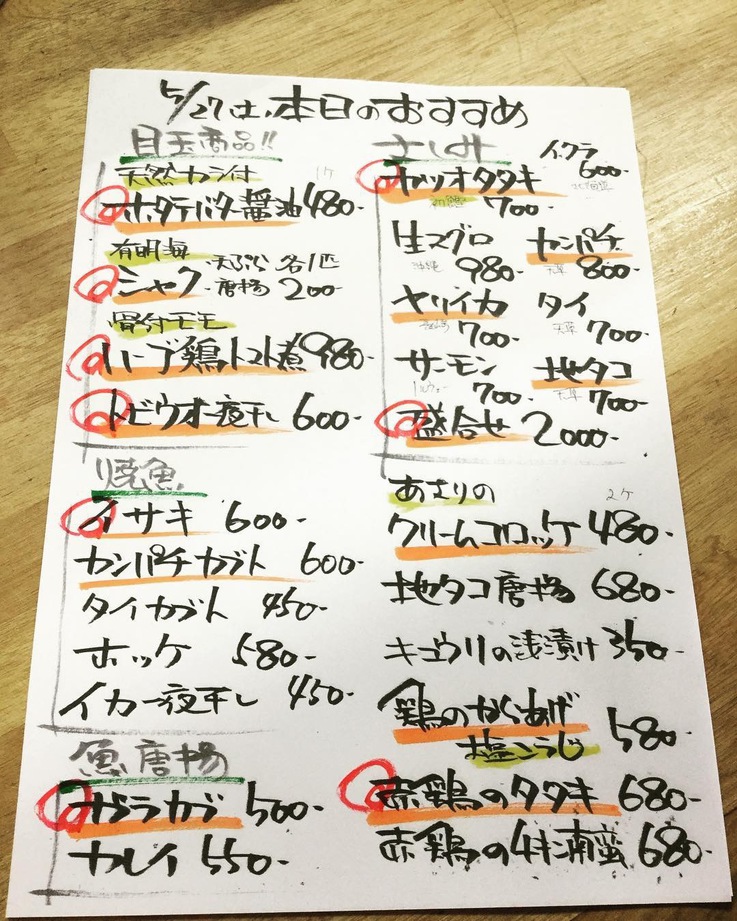 5/27(土)本日のおすすめ
目玉商品!!
天然カラ付 1ケ
ホタテバター醤油 480-
有明海
シャク ・天ぷら ・唐揚 各1匹 200-
骨付モモ
ハーブ鶏トマト煮 980-
トビウオ一夜干し 600-
焼魚
イサキ 600-
カンパチカブト 600-
タイカブト 450-
ホッケ 580-
イカ一夜干し 450-
魚唐揚
カレイ 550-
さしみ
イクラ 600-
カツオタタキ 700-
生マグロ 沖縄 980-
カンパチ 天草 800-
ヤリイカ 700-
タイ 天草 700-
サーモン ノルウェー 700-
地タコ 天草 700-
盛合せ 2000-
あさりの 2ケ
クリームコロッケ 480-
地タコ唐揚 680-
キュウリの浅漬け 350-
鶏のからあげ 580-
塩こうじ
赤鶏のタタキ 680-
赤鶏のチキン南蛮 680-